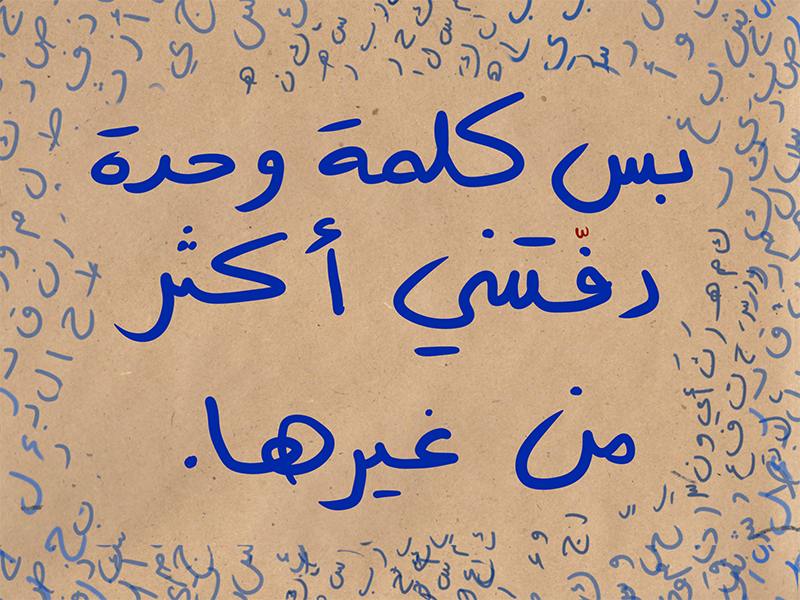 بس كلمة وحدة
دفّتني أكثر
من غيرها.